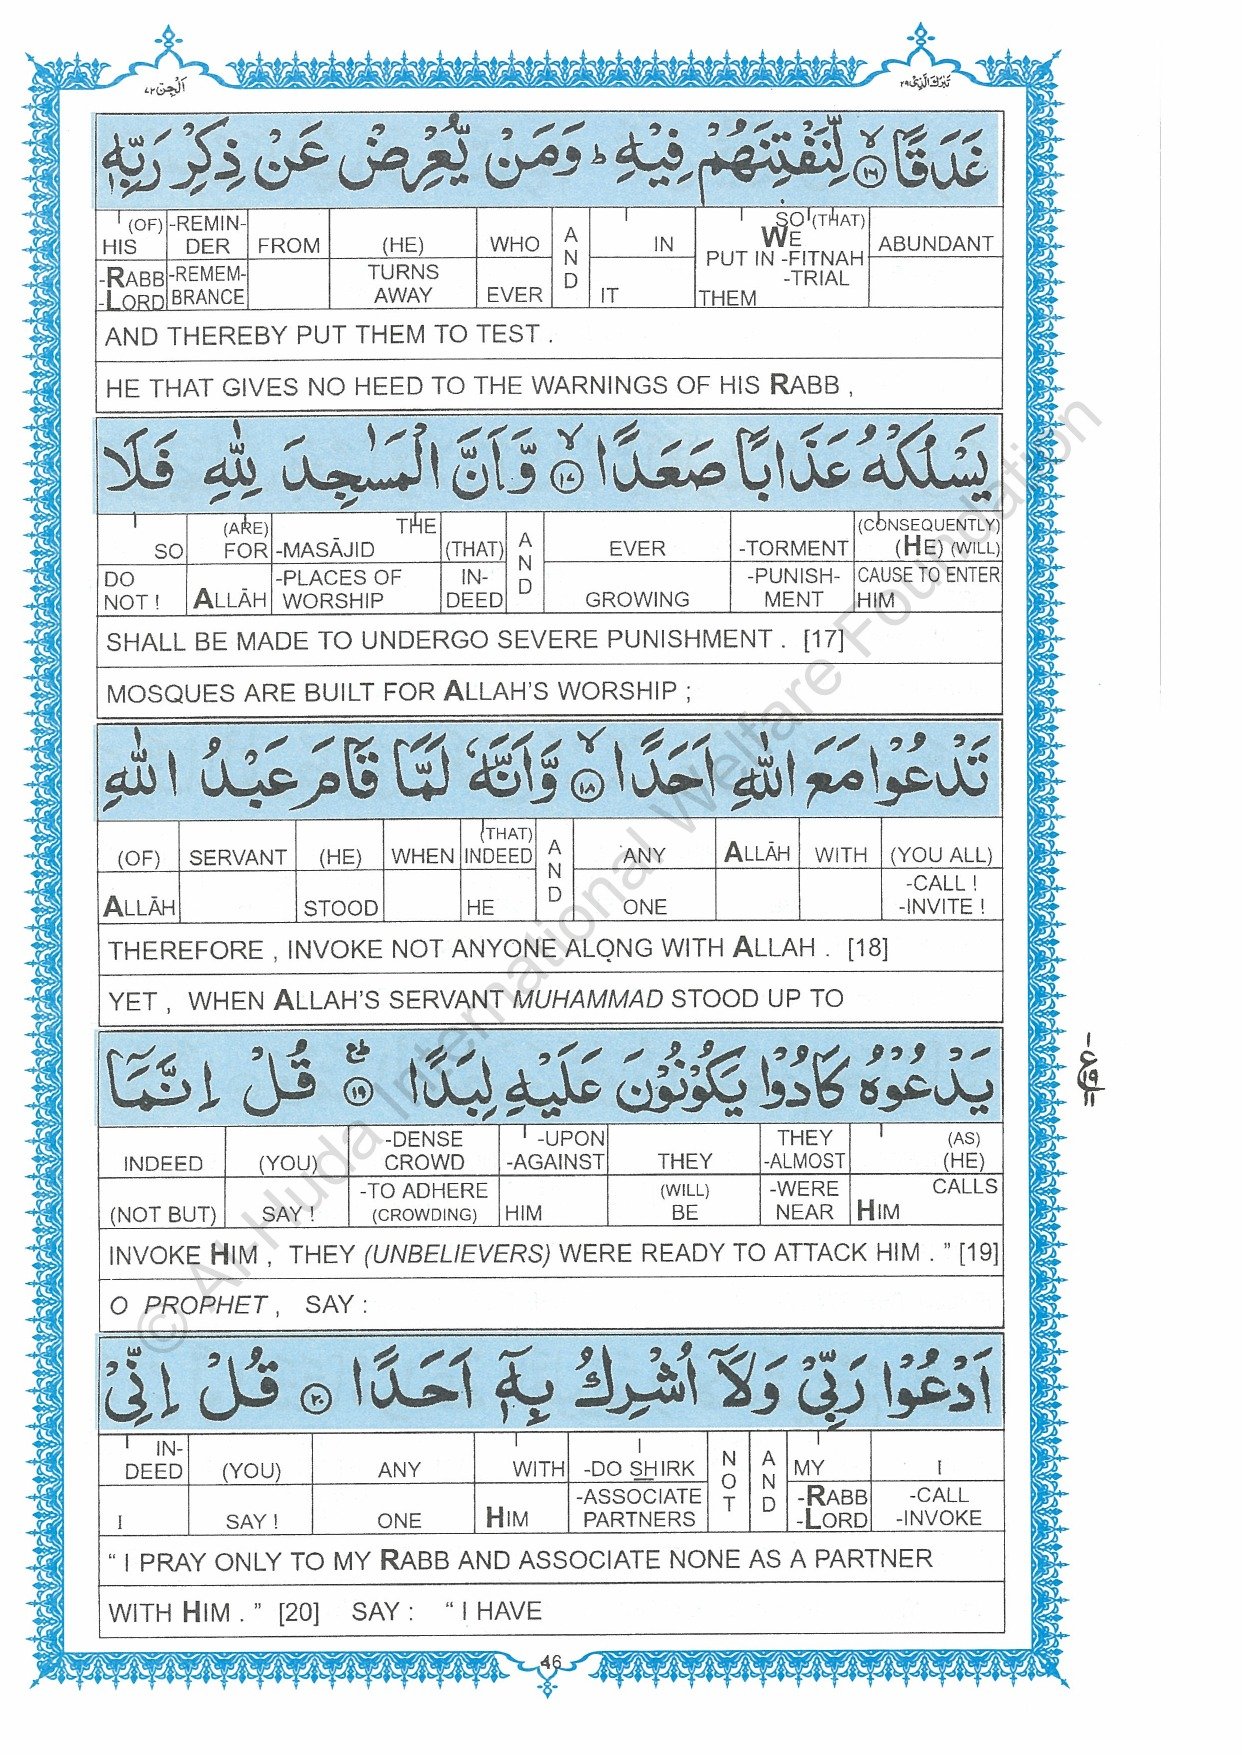 اَلْجِنّ ٧٢
تَبٰرَكَ الَّذِیْ ٢٩
غَدَقًا ۙ﴿١٦﴾ لِّنَفْتِنَهُمْ فِیْهِ ؕ وَمَنْ یُّعْرِضْ عَنْ ذِكْرِ رَبِّهٖ
(OF) HIS -RABB -LORD | -REMIN-DER -REMEM-BRANCE | FROM | (HE) TURNS AWAY | WHO EVER | AND | IN IT | SO (THAT) WE PUT IN -FITNAH -TRIAL THEM | ABUNDANT
AND THEREBY PUT THEM TO TEST .
HE THAT GIVES NO HEED TO THE WARNINGS OF HIS RABB ,
یَسْلُكْهُ عَذَابًا صَعَدًا ۙ﴿١٧﴾ وَّاَنَّ الْمَسٰجِدَ لِلّٰهِ فَلَا
SO DO NOT ! | (ARE) FOR ALLĀH | THE -MASĀJID -PLACES OF WORSHIP | (THAT) IN-DEED | AND | EVER GROWING | -TORMENT -PUNISH-MENT | (CONSEQUENTLY) (HE) (WILL) CAUSE TO ENTER HIM
SHALL BE MADE TO UNDERGO SEVERE PUNISHMENT . [17]
MOSQUES ARE BUILT FOR ALLAH'S WORSHIP ;
تَدْعُوْا مَعَ اللّٰهِ اَحَدًا ۙ﴿١٨﴾ وَّاَنَّهٗ لَمَّا قَامَ عَبْدُ اللّٰهِ
(OF) ALLĀH | SERVANT | (HE) STOOD | WHEN | (THAT) INDEED HE | AND | ANY ONE | ALLĀH | WITH | (YOU ALL) -CALL ! -INVITE !
THEREFORE , INVOKE NOT ANYONE ALONG WITH ALLAH . [18]
YET , WHEN ALLAH'S SERVANT MUHAMMAD STOOD UP TO
یَدْعُوْهُ كَادُوْا یَكُوْنُوْنَ عَلَیْهِ لِبَدًا ﴿١٩﴾ؕع قُلْ اِنَّمَاۤ
INDEED (NOT BUT) | (YOU) SAY ! | -DENSE CROWD -TO ADHERE (CROWDING) | -UPON -AGAINST HIM | THEY (WILL) BE | THEY -ALMOST -WERE NEAR | (AS) (HE) CALLS HIM
INVOKE HIM , THEY (UNBELIEVERS) WERE READY TO ATTACK HIM . ” [19]
O PROPHET , SAY :
١
ع
١٩
١١
اَدْعُوْا رَبِّیْ وَلَاۤ اُشْرِكُ بِهٖۤ اَحَدًا ﴿٢٠﴾ قُلْ اِنِّیْ
IN-DEED I | (YOU) SAY ! | ANY ONE | WITH HIM | I -DO SHIRK -ASSOCIATE PARTNERS | NOT | AND | MY -RABB -LORD | I -CALL -INVOKE
“ I PRAY ONLY TO MY RABB AND ASSOCIATE NONE AS A PARTNER
WITH HIM . ” [20] SAY : “ I HAVE
46
© Al-Huda International Welfare Foundation